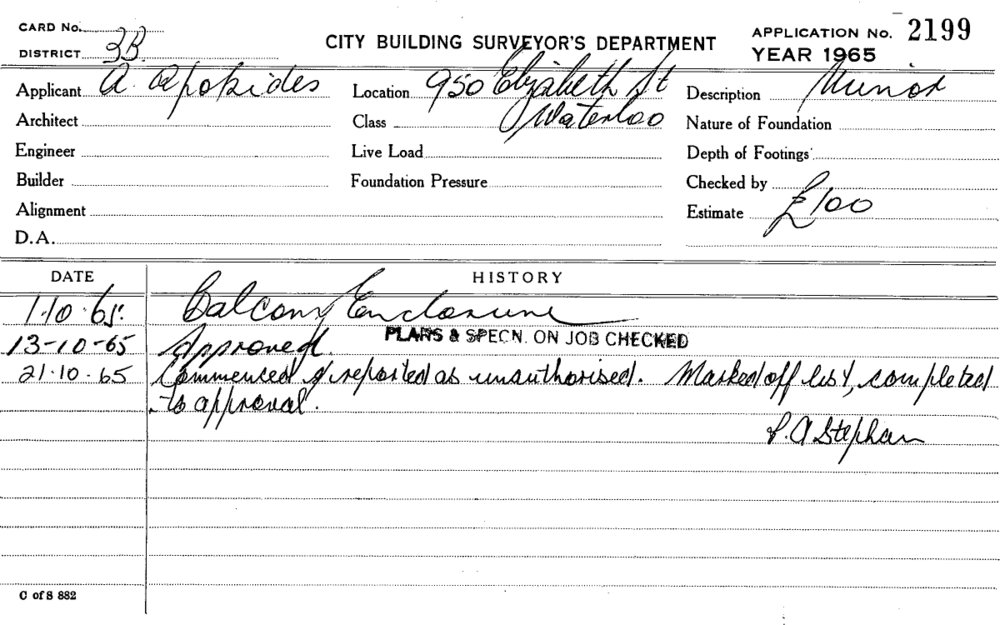 CARD No.
DISTRICT 3B
CITY BUILDING SURVEYOR'S DEPARTMENT
APPLICATION No. 2199
YEAR 1965
Applicant A. Apokides
Location 950 Elizabeth St
Waterloo
Description Minor
Architect
Class
Nature of Foundation
Engineer
Live Load
Depth of Footings
Builder
Foundation Pressure
Checked by
Alignment
Estimate £100
D.A.
DATE
HISTORY
1.10.65. Balcony Enclosure
13-10-65 Approved. PLANS & SPECN. ON JOB CHECKED
21.10.65 Commenced & reported as unauthorised. Marked off list, completed
to approval.
P.A Stephan
C of S 882